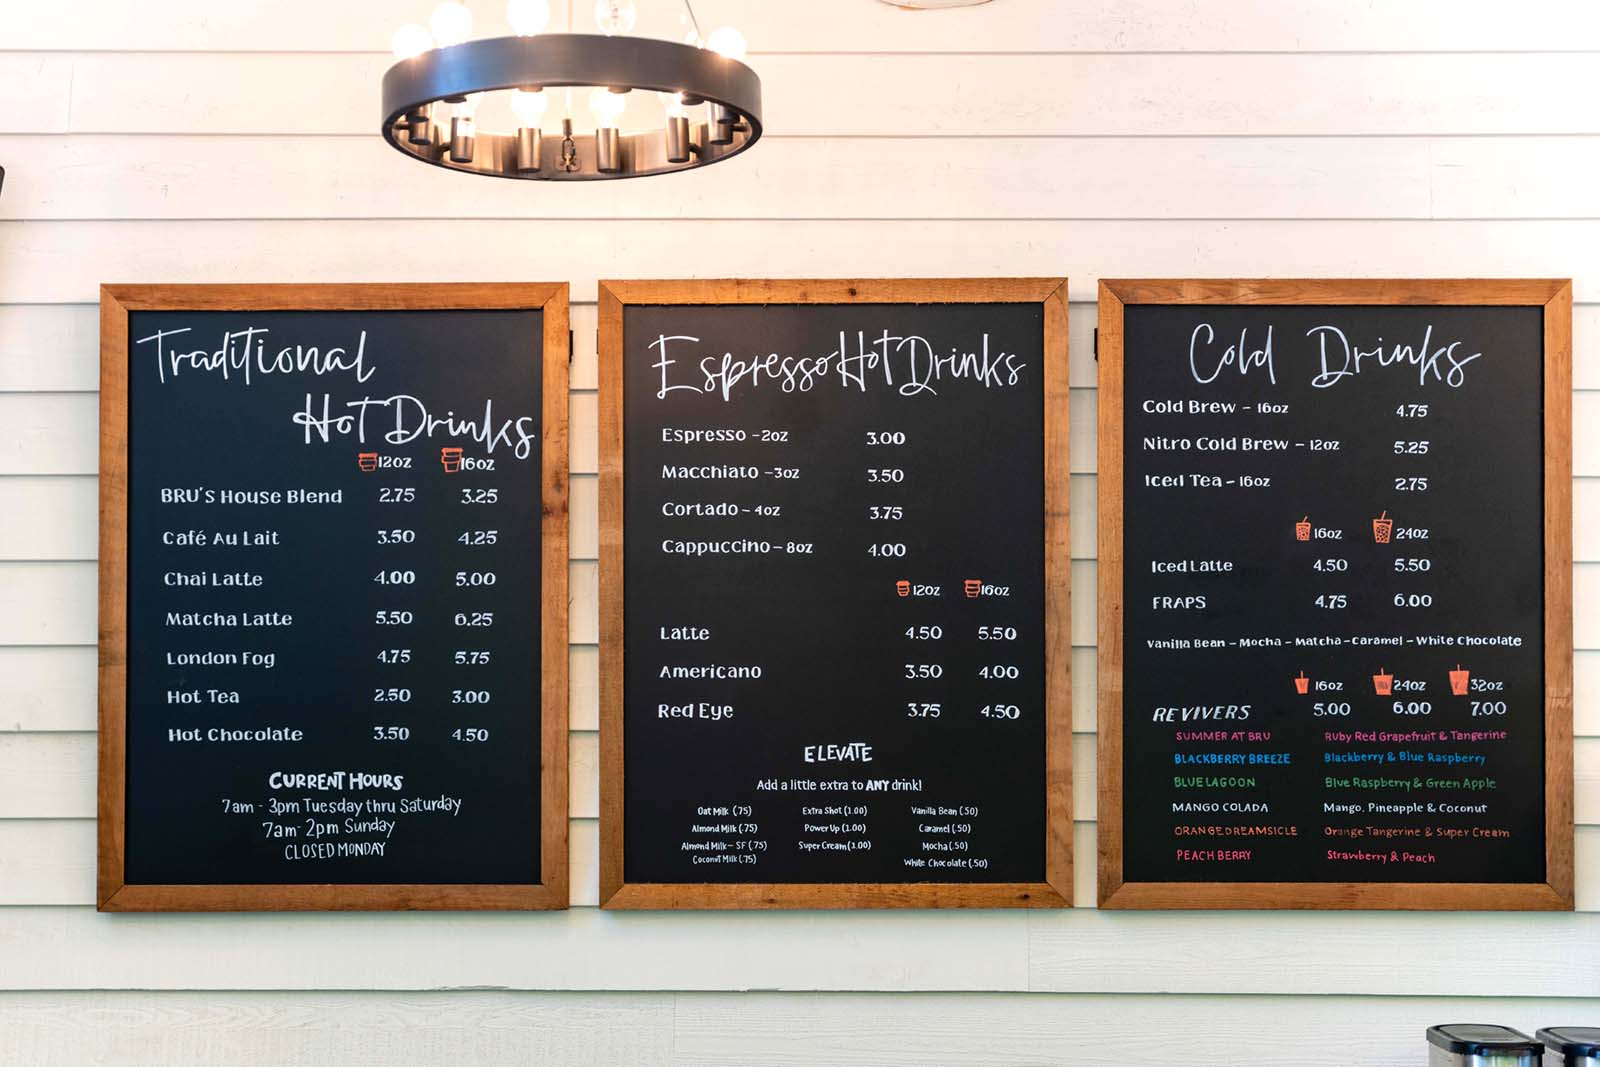 Traditional
Hot Drinks
12oz 16oz
BRU'S House Blend 2.75 3.25
Café Au Lait 3.50 4.25
Chai Latte 4.00 5.00
Matcha Latte 5.50 6.25
London Fog 4.75 5.75
Hot Tea 2.50 3.00
Hot Chocolate 3.50 4.50
CURRENT HOURS
7am - 3pm Tuesday thru Saturday
7am - 2pm Sunday
CLOSED MONDAY
Espresso Hot Drinks
Espresso - 2oz 3.00
Macchiato - 3oz 3.50
Cortado - 4oz 3.75
Cappuccino - 8oz 4.00
12oz 16oz
Latte 4.50 5.50
Americano 3.50 4.00
Red Eye 3.75 4.50
ELEVATE
Add a little extra to ANY drink!
Oat Milk (.75) Extra Shot (1.00) Vanilla Bean (.50)
Almond Milk (.75) Power Up (1.00) Caramel (.50)
Almond Milk - SF (.75) Super Cream (1.00) Mocha (.50)
Coconut Milk (.75) White Chocolate (.50)
Cold Drinks
Cold Brew - 16oz 4.75
Nitro Cold Brew - 12oz 5.25
Iced Tea - 16oz 2.75
16oz 24oz
Iced Latte 4.50 5.50
FRAPS 4.75 6.00
Vanilla Bean - Mocha - Matcha - Caramel - White Chocolate
16oz 24oz 32oz
REVIVERS 5.00 6.00 7.00
SUMMER AT BRU Ruby Red Grapefruit & Tangerine
BLACKBERRY BREEZE Blackberry & Blue Raspberry
BLUE LAGOON Blue Raspberry & Green Apple
MANGO COLADA Mango, Pineapple & Coconut
ORANGE DREAMSICLE Orange Tangerine & Super Cream
PEACH BERRY Strawberry & Peach